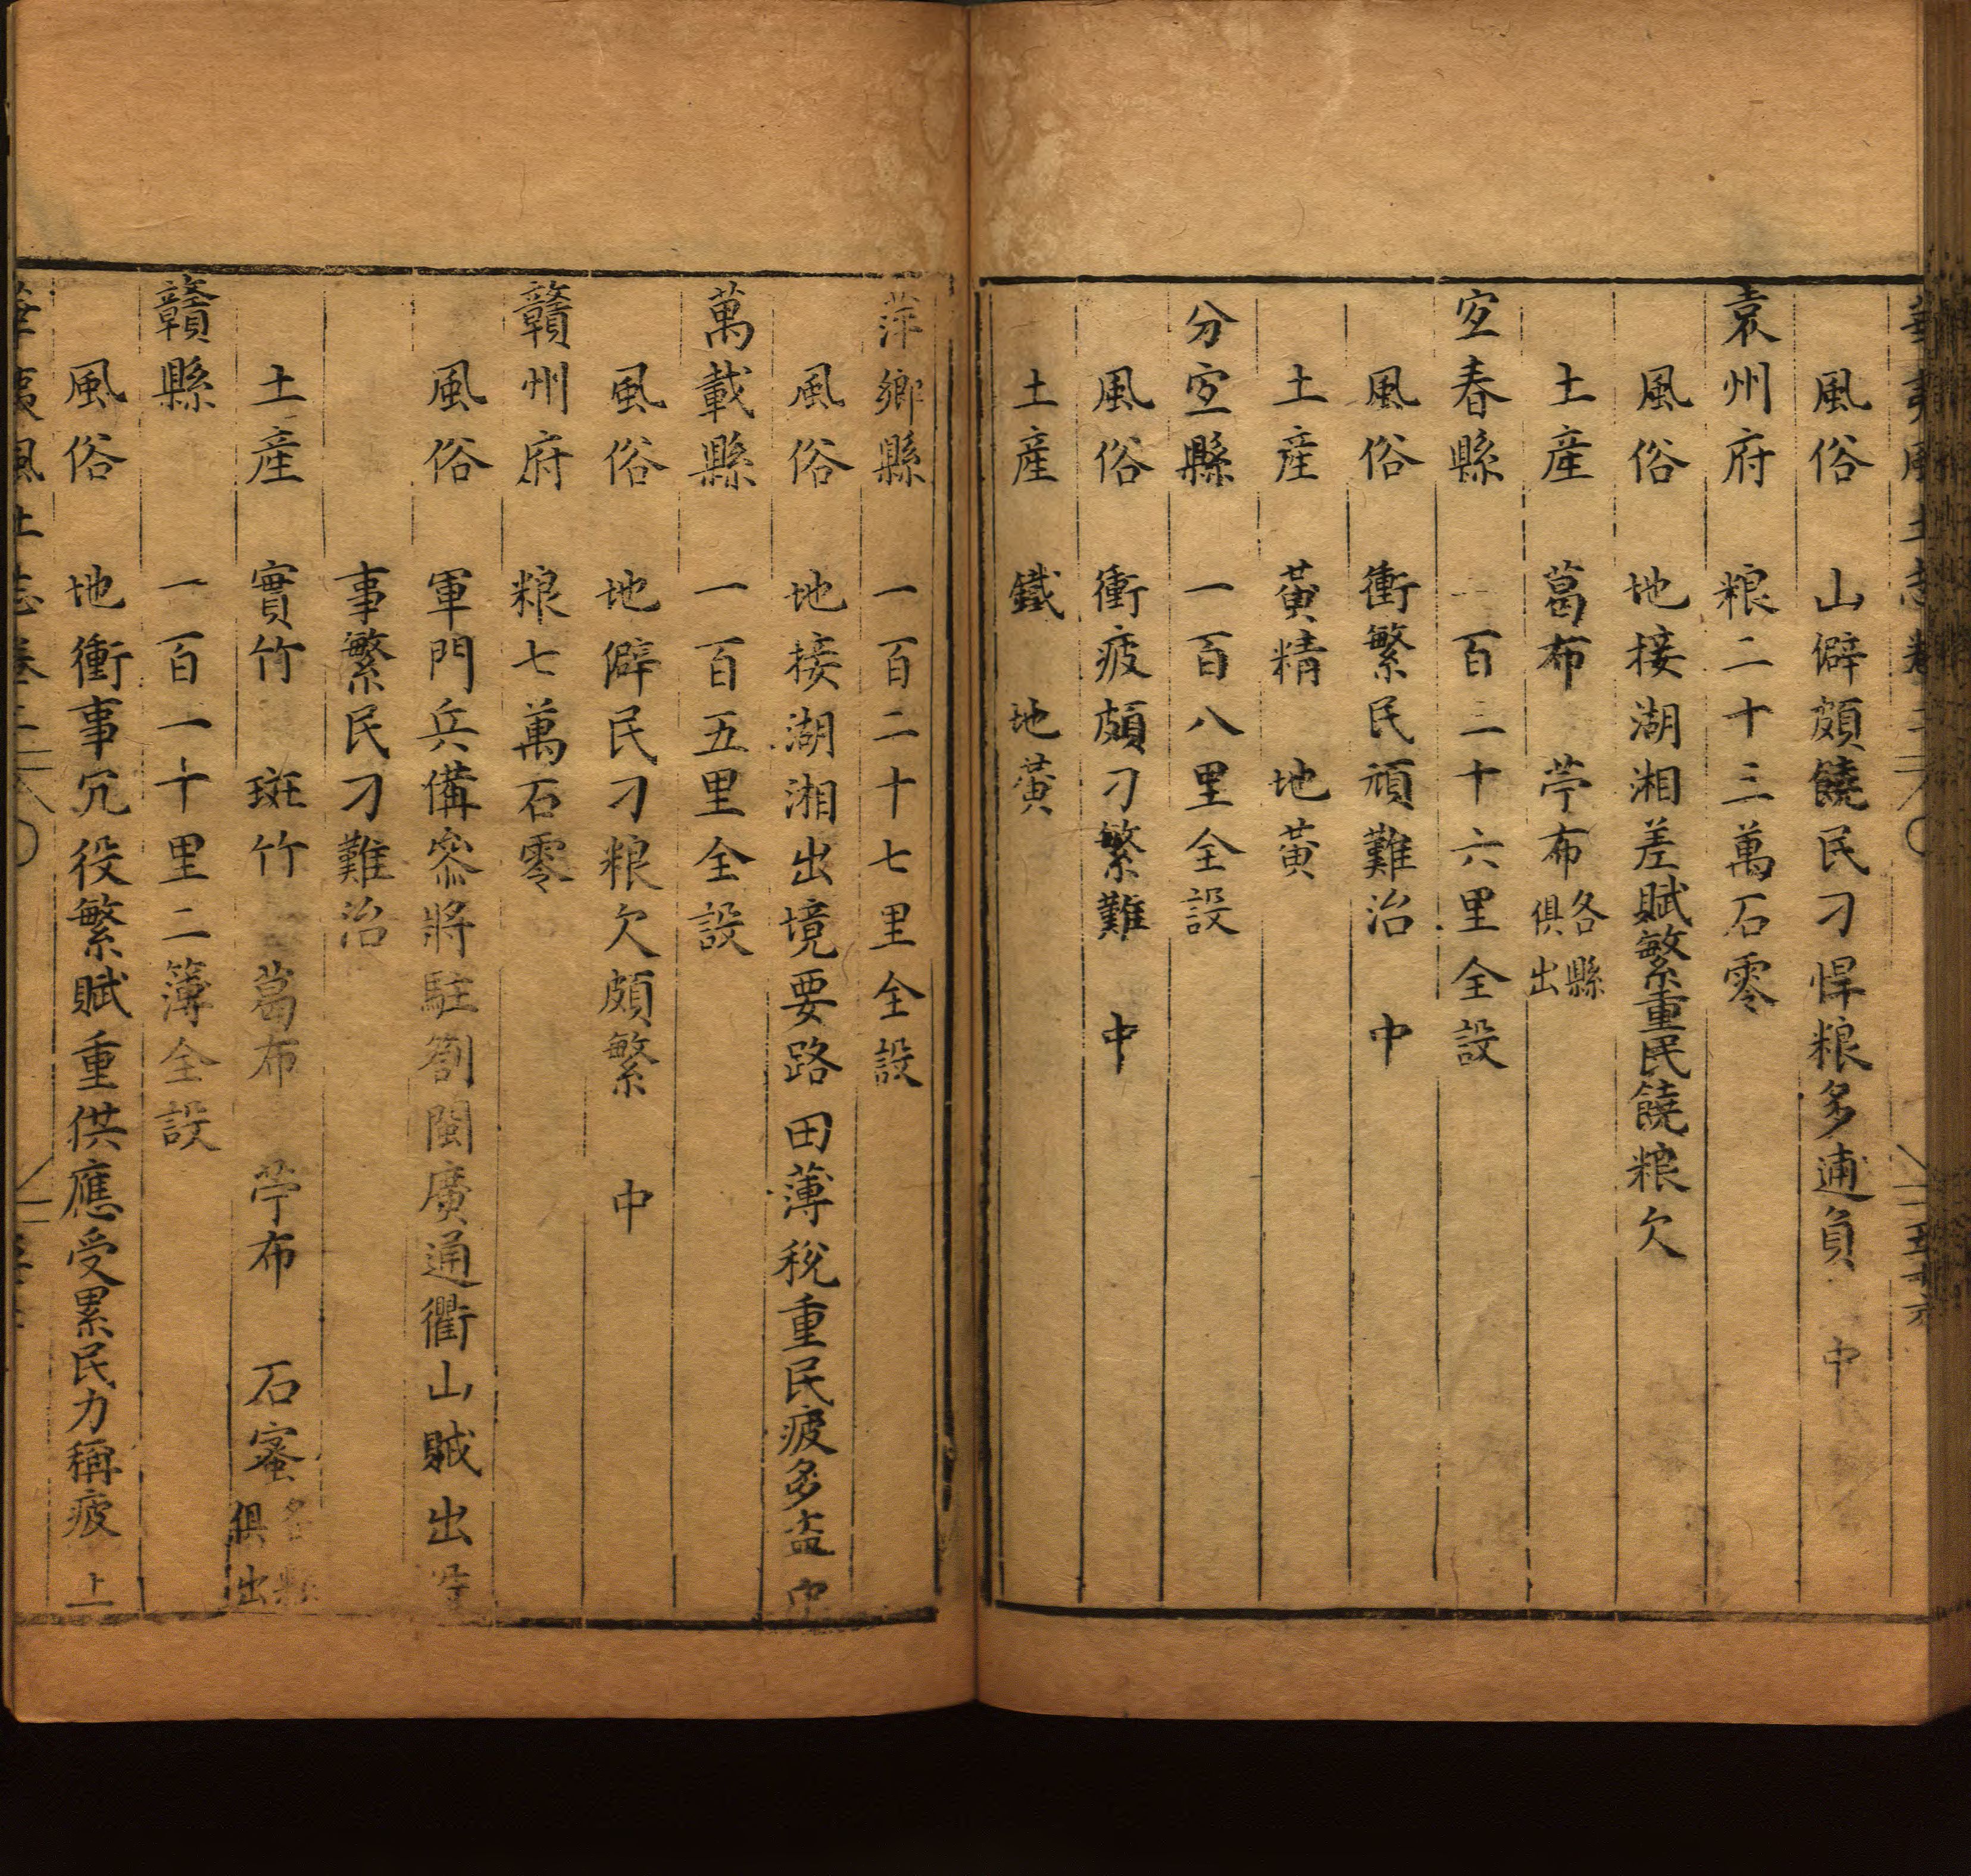 風俗 山僻頗饒民刁悍粮多逋負 中
袁州府 粮二十三萬石零
風俗 地接湖湘差賦繁重民饒粮欠
土産 葛布 苧布 各縣俱出
宜春縣 百二十六里全設
風俗 衝繁民頑難治 中
土産 黃精 地黃
分宜縣 一百八里全設
風俗 衝疲頗刁繁難 中
土産 鐵 地黃
萍鄉縣 一百二十七里全設
風俗 地接湖湘出境要路田薄稅重民疲多盗 中
萬載縣 一百五里全設
風俗 地僻民刁粮欠頗繁 中
贛州府 粮七萬石零
風俗 軍門兵備叅將駐劄閩廣通衢山賊出
事繁民刁難治
土産 實竹 斑竹 葛布 苧布 石蜜 各縣俱出
贛縣 一百一十里二簿全設
風俗 地衝事冗役繁賦重供應受累民力稱疲 上